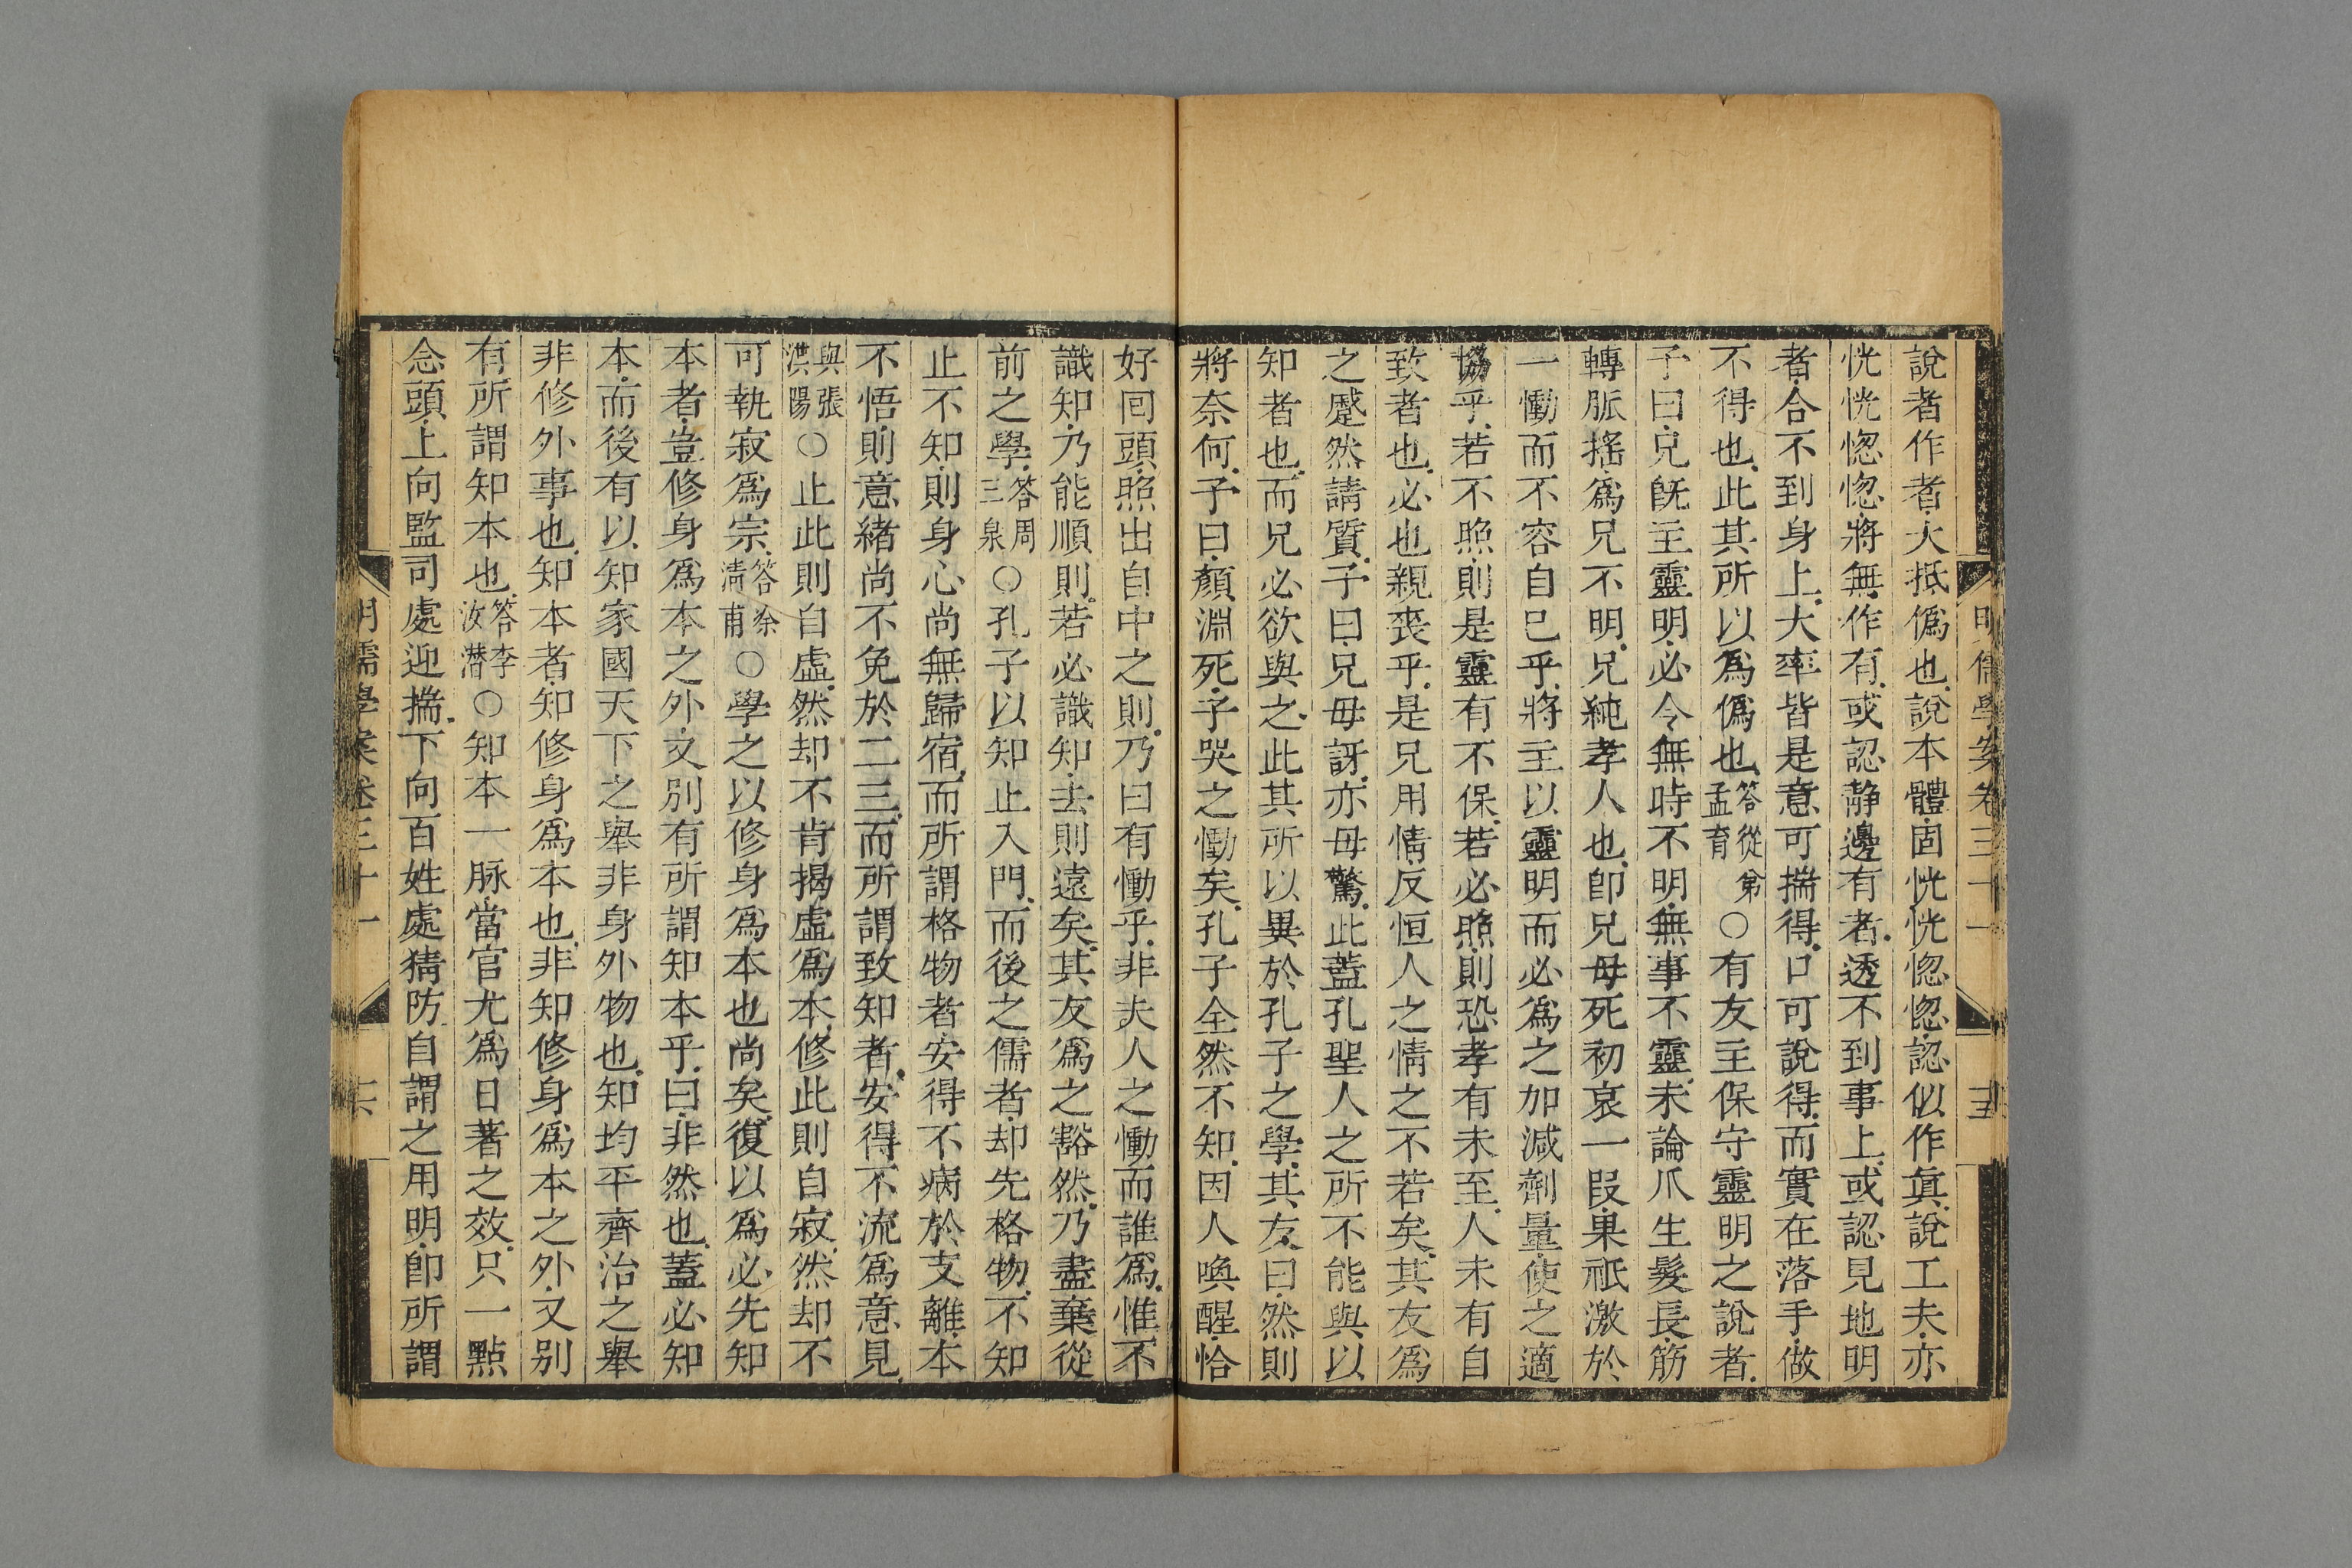 明儒學案卷三十一
十五
說者作者大抵僞也說本體固恍恍惚惚認似作眞說工夫亦
恍恍惚惚將無作有或認靜邊有者透不到事上或認見地明
者合不到身上大率皆是意可揣得口可說得而實在落手做
不得也此其所以爲僞也答從弟孟育○有友主保守靈明之說者
予曰兄旣主靈明必令無時不明無事不靈未論爪生髮長筋
轉脈搖爲兄不明兄純孝人也卽兄母死初哀一段果祇激於
一慟而不容自已乎將主以靈明而必爲之加減劑量使之適
協乎若不照則是靈有不保若必照則恐孝有未至人未有自
致者也必也親喪乎是兄用情反恒人之情之不若矣其友爲
之蹙然請質予曰兄毋訝亦毋驚此蓋孔聖人之所不能與以
知者也而兄必欲與之此其所以異於孔子之學其友曰然則
將奈何予曰顏淵死子哭之慟矣孔子全然不知因人喚醒恰
好回頭照出自中之則乃曰有慟乎非夫人之慟而誰爲惟不
識知乃能順則若必識知去則遠矣其友爲之豁然乃盡棄從
前之學答周三泉○孔子以知止入門而後之儒者却先格物不知
止不知則身心尚無歸宿而所謂格物者安得不病於支離本
不悟則意緒尚不免於二三而所謂致知者安得不流爲意見
與張洪陽○止此則自虛然却不肯揭虛爲本修此則自寂然却不
可執寂爲宗答涂清甫○學之以修身爲本也尚矣復以爲必先知
本者豈修身爲本之外又別有所謂知本乎曰非然也蓋必知
本而後有以知家國天下之舉非身外物也知均平齊治之舉
非修外事也知本者知修身爲本也非知修身爲本之外又别
有所謂知本也答李汝潛○知本一脉當官尤爲日著之效只一點
念頭上向監司處迎揣下向百姓處猜防自謂之用明卽所謂
明儒學案卷三十一
十六